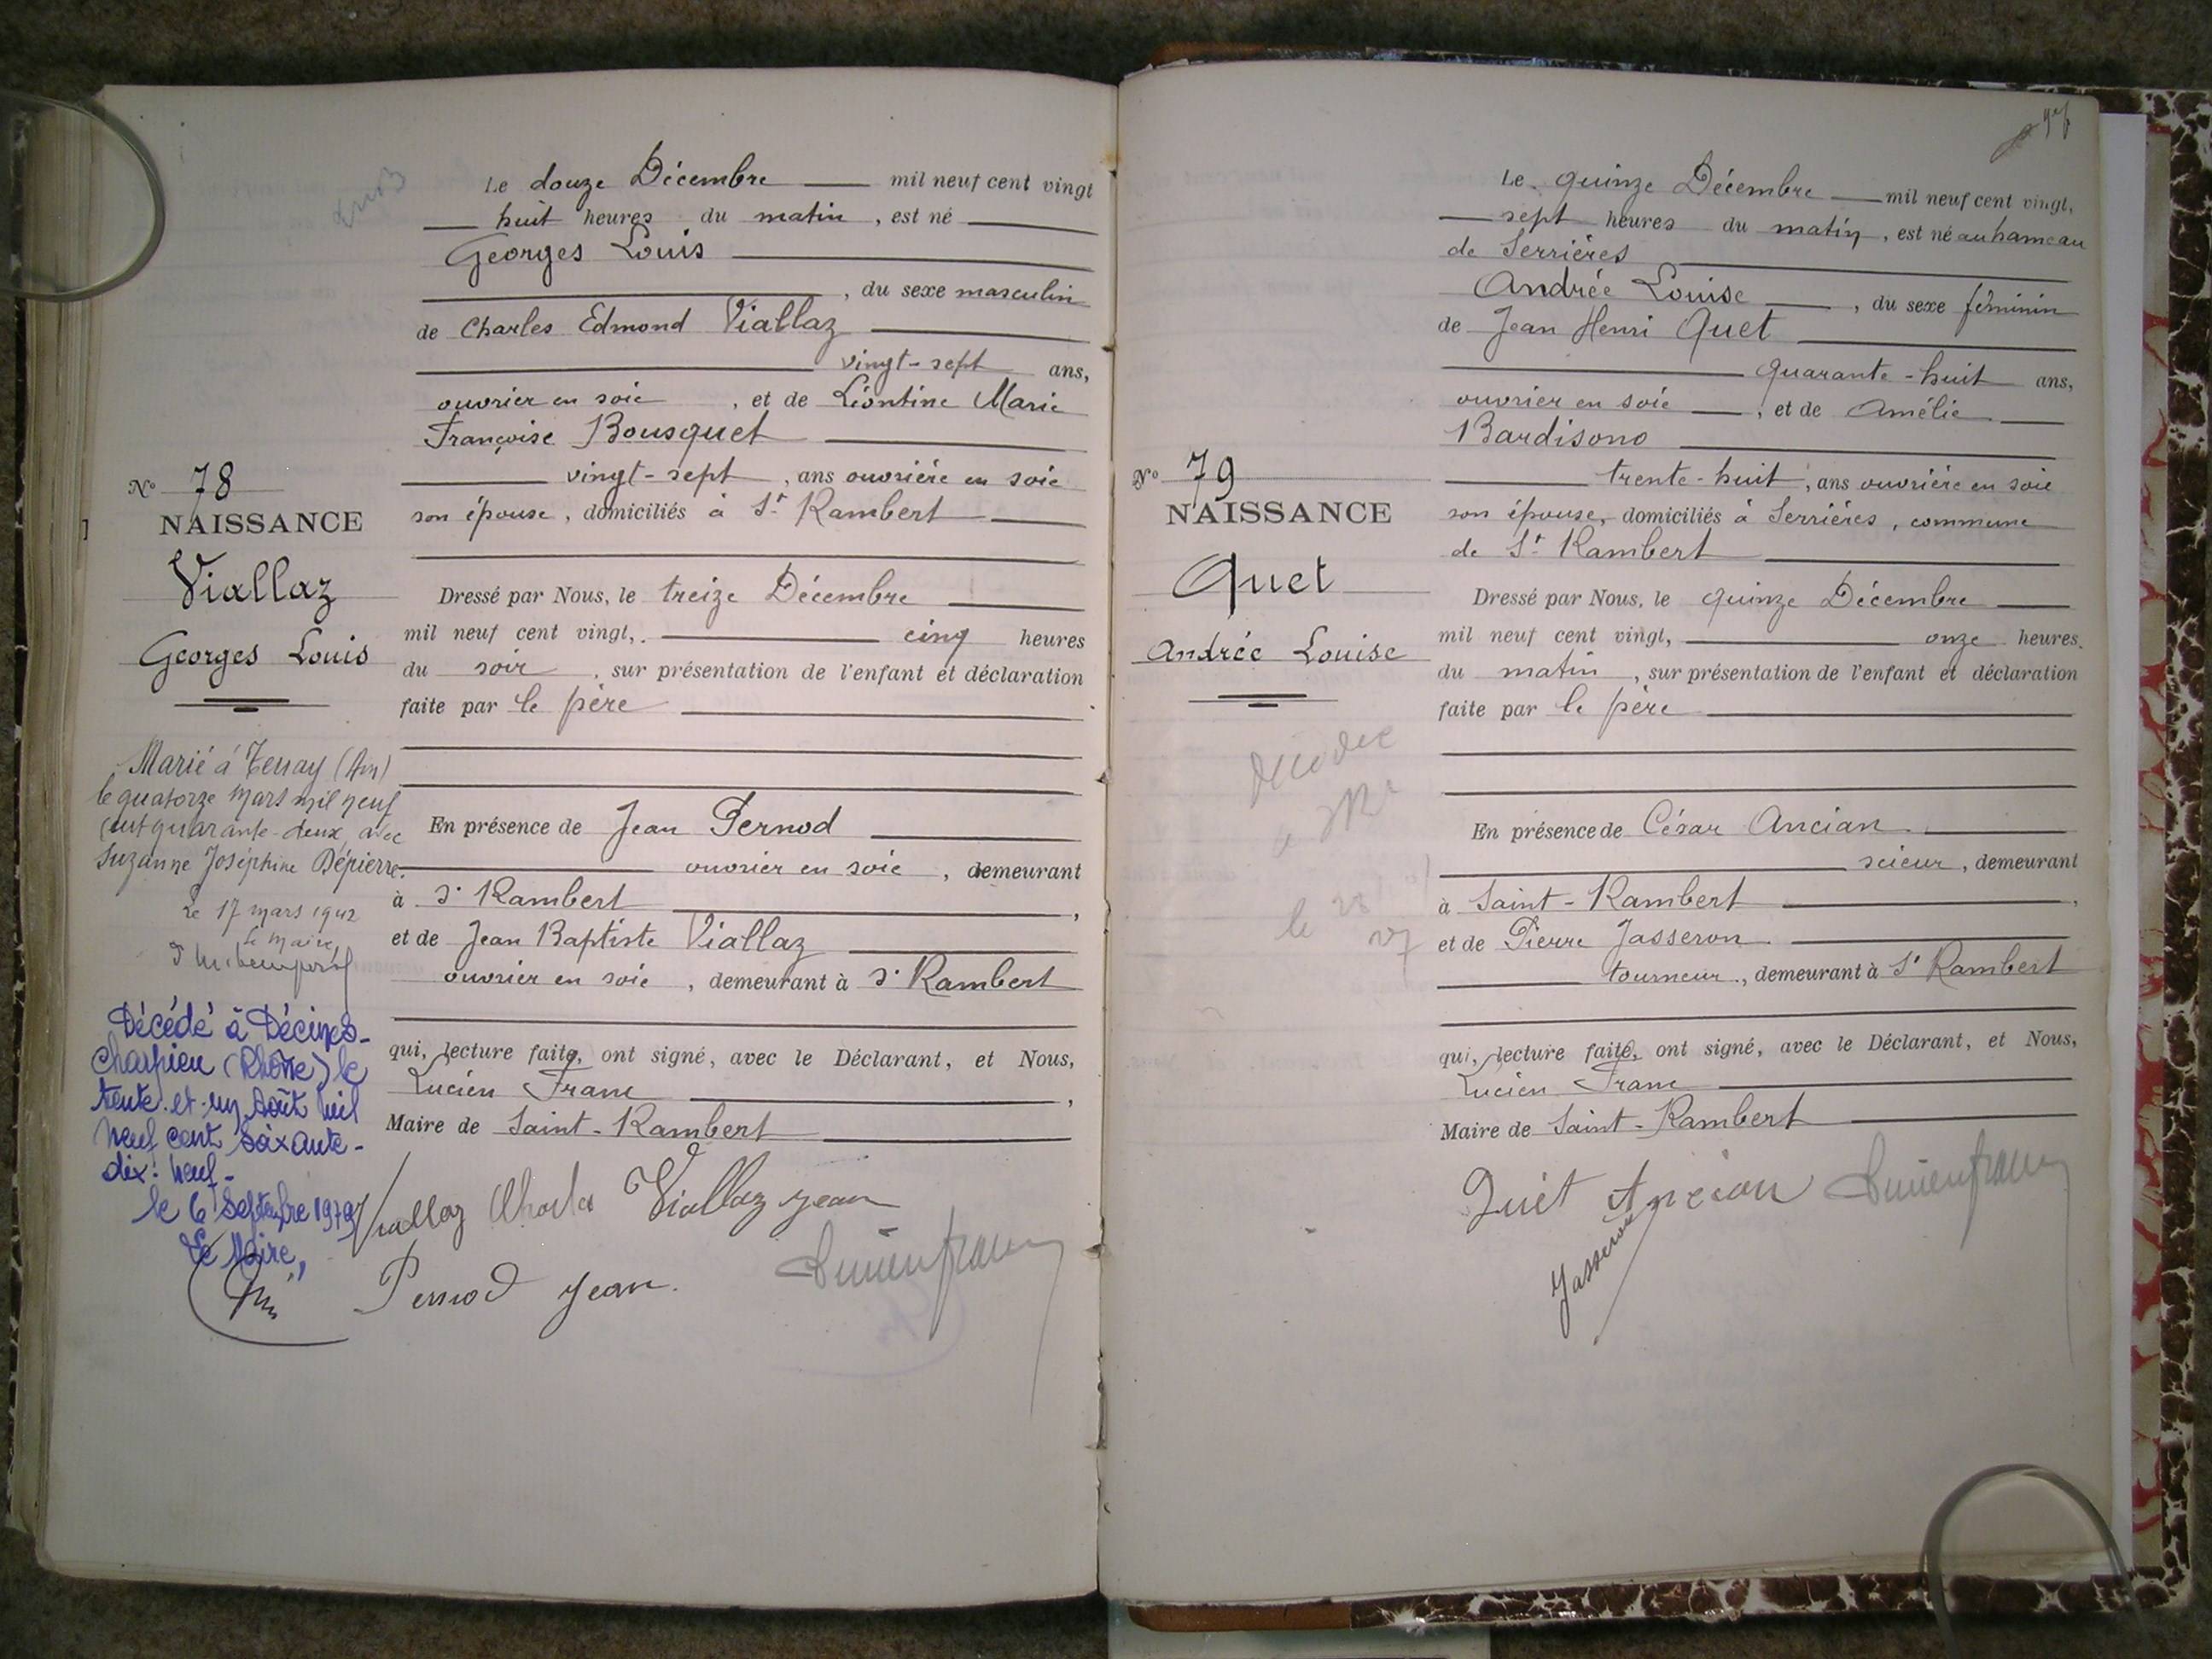 Le douze Décembre mil neuf cent vingt
huit heures du matin, est né
Georges Louis
, du sexe masculin
de Charles Edmond Viallaz
vingt-sept ans,
ouvrier en soie, et de Léontine Marie
Françoise Bousquet
vingt-sept, ans ouvrière en soie
son épouse, domiciliés à St Rambert
N° 78
NAISSANCE
Viallaz
Georges Louis
Dressé par Nous, le treize Décembre
mil neuf cent vingt, cinq heures
du soir, sur présentation de l'enfant et déclaration
faite par le père
En présence de Jean Pernod
ouvrier en soie, demeurant
à St Rambert,
et de Jean Baptiste Viallaz
ouvrier en soie, demeurant à St Rambert
qui, lecture faite, ont signé, avec le Déclarant, et Nous,
Lucien Franc,
Maire de Saint-Rambert
Marié à Tenay (Ain)
le quatorze Mars mil neuf
cent quarante-deux, avec
Suzanne Joséphine Dépierre.
Le 17 mars 1942
Le Maire,
Décédé à Décines-
Charpieu (Rhône) le
trente-et-un Août mil
neuf cent soixante-
dix-neuf-
le 6 Septembre 1979
Le Maire,
Viallaz Charles Viallaz Jean
Pernod Jean. Lucien Franc
Le quinze Décembre mil neuf cent vingt,
sept heures du matin, est né au hameau
de Serrières
Andrée Louise, du sexe féminin
de Jean Henri Quet
quarante-huit ans,
ouvrier en soie, et de Amélie
Bardisono
trente-huit, ans ouvrière en soie
son épouse, domiciliés à Serrières, commune
de St Rambert
N° 79
NAISSANCE
Quet
Andrée Louise
Dressé par Nous, le quinze Décembre
mil neuf cent vingt, onze heures.
du matin, sur présentation de l'enfant et déclaration
faite par le père
décédée
le
En présence de César Ancian
scieur, demeurant
à Saint-Rambert,
et de Pierre Jasseron
tourneur, demeurant à St Rambert
qui, lecture faite, ont signé, avec le Déclarant, et Nous,
Lucien Franc
Maire de Saint-Rambert
Quet Ancian Lucien Franc
Jasseron